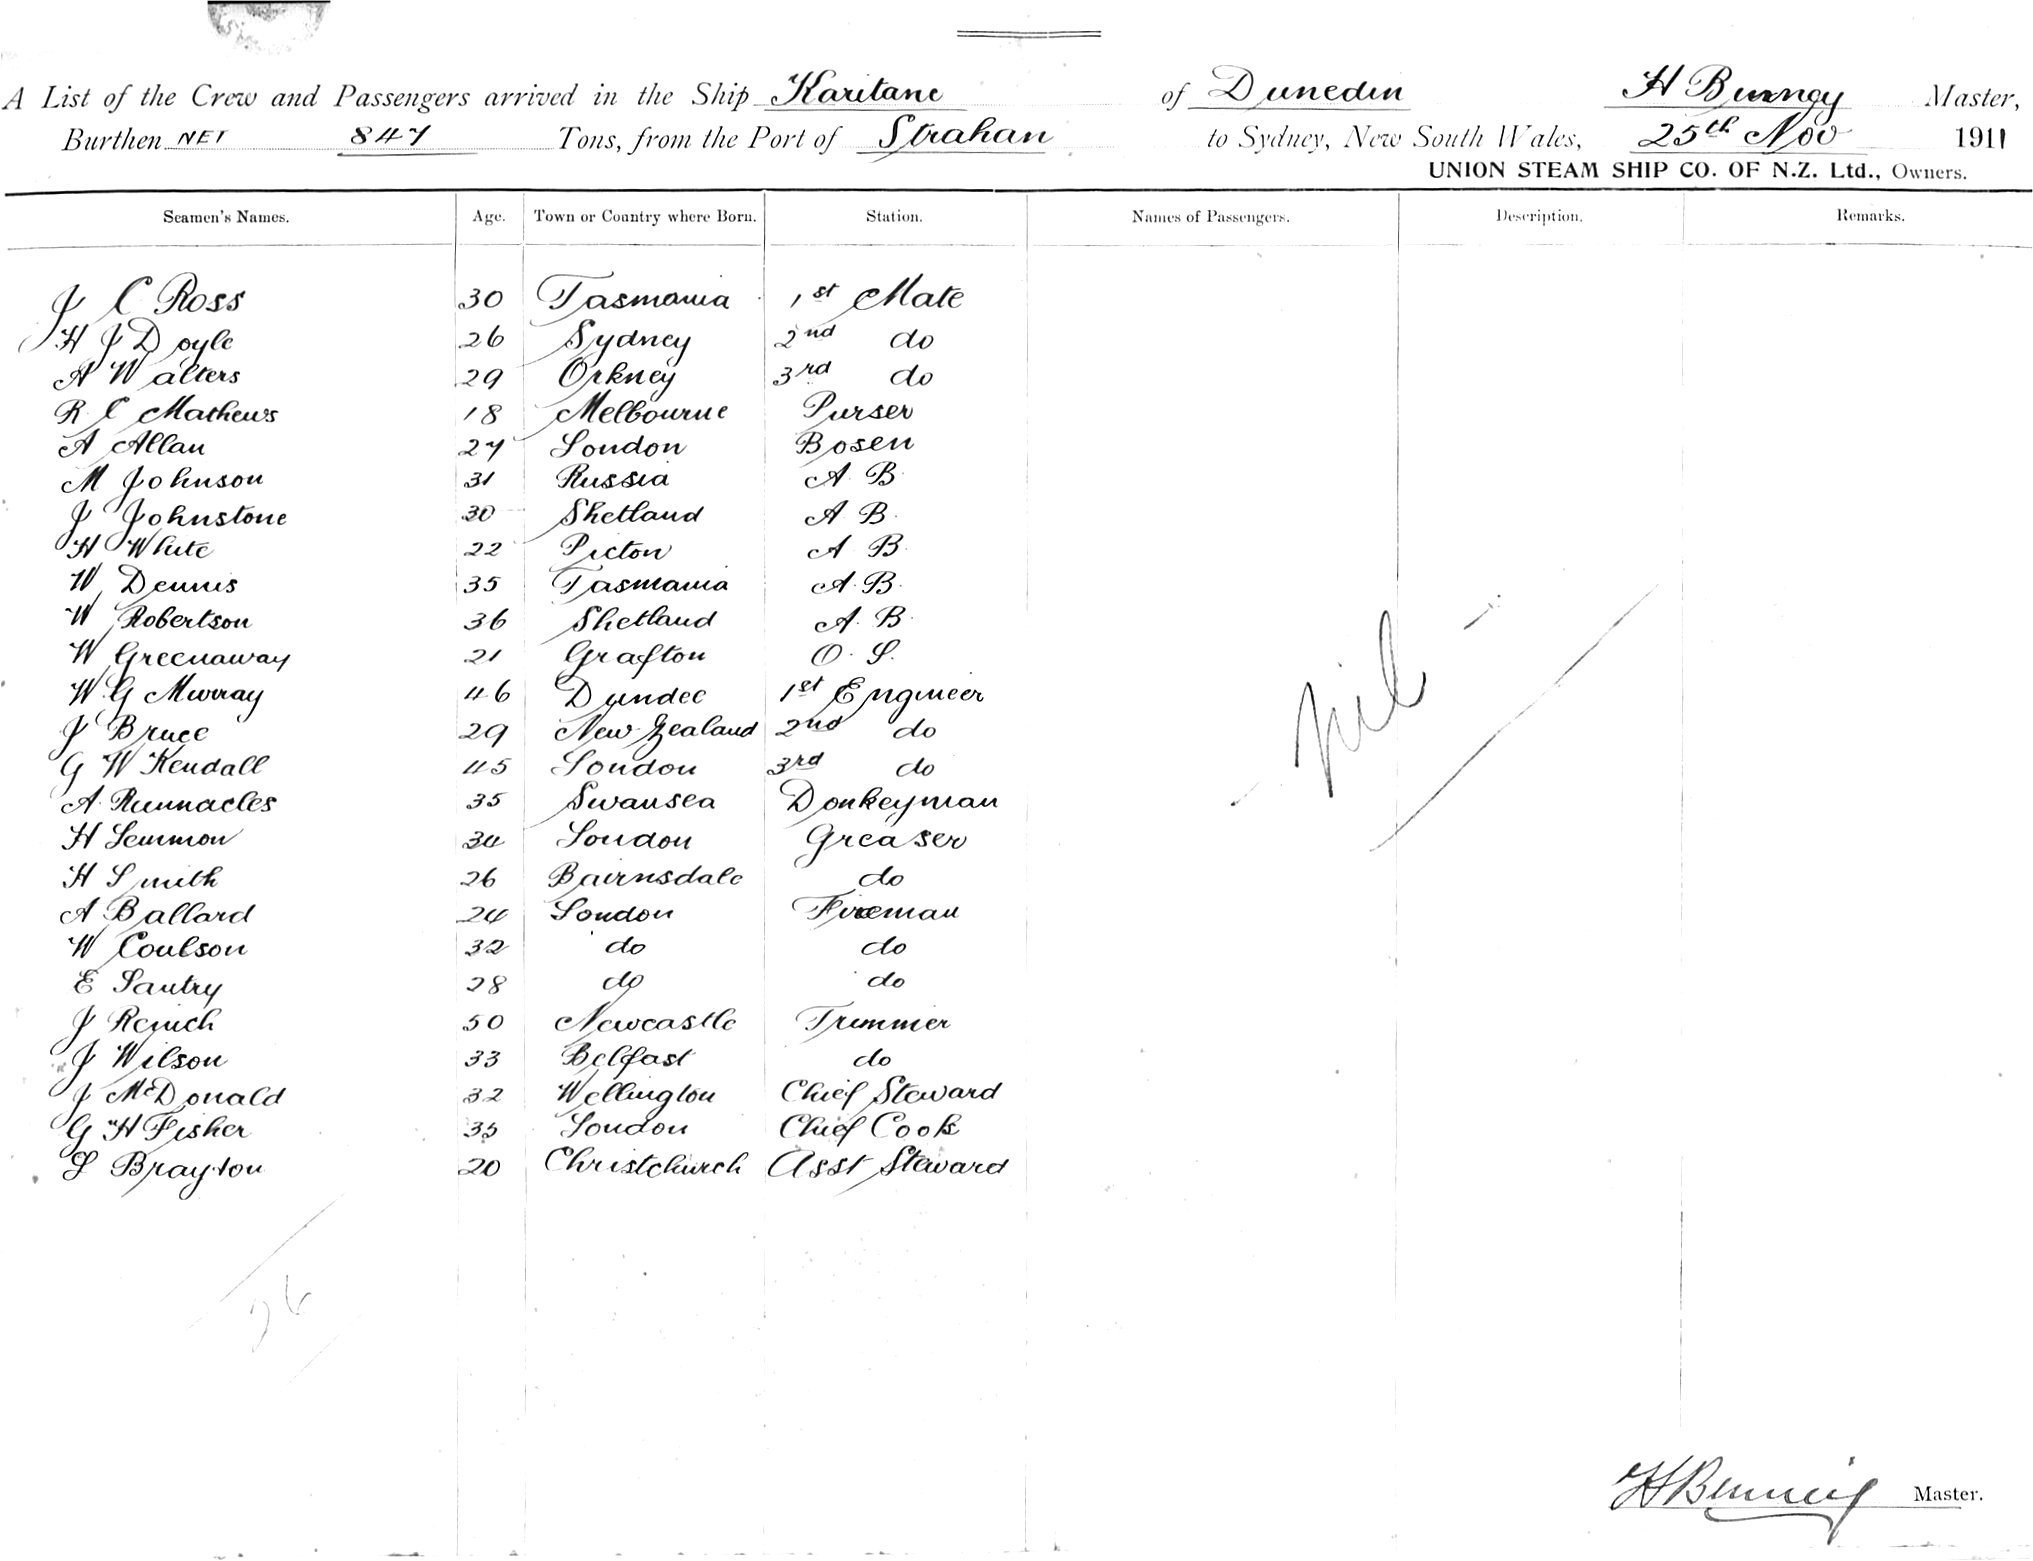 A List of the Crew and Passengers arrived in the Ship Karitane of Dunedin H Burngy Master,
Burthen NET 847 Tons, from the Port of Strahan to Sydney, New South Wales, 25th Nov 1911
UNION STEAM SHIP CO. OF N.Z. Ltd., Owners.
Seamen's Names. Age. Town or Country where Born. Station. Names of Passengers. Description. Remarks.
J C Ross 30 Tasmania 1st Mate
H J Doyle 26 Sydney 2nd do
A Walters 29 Orkney 3rd do
R C Mathews 18 Melbourne Purser
A Allan 27 London Bosen
M Johnson 31 Russia A. B.
J Johnstone 30 Shetland A B.
H White 22 Picton A B.
W Dennis 35 Tasmania A. B.
W Robertson 36 Shetland A. B.
W Greenaway 21 Grafton O. S.
W. G Murray 46 Dundee 1st Engineer
J Bruce 29 New Zealand 2nd do
G W Kendall 45 London 3rd do
- Nil -
A. Runnacles 35 Swansea Donkeyman
H Lemmon 34 London Greaser
H Smith 26 Bairnsdale do
A Ballard 24 London Fireman
W Coulson 32 do do
E Santry 28 do do
J 50 Newcastle Trimmer
J Wilson 33 Belfast do
J McDonald 32 Wellington Chief Steward
G H Fisher 35 London Chief Cook
S Brayton 20 Christchurch Asst Steward
26
Master.